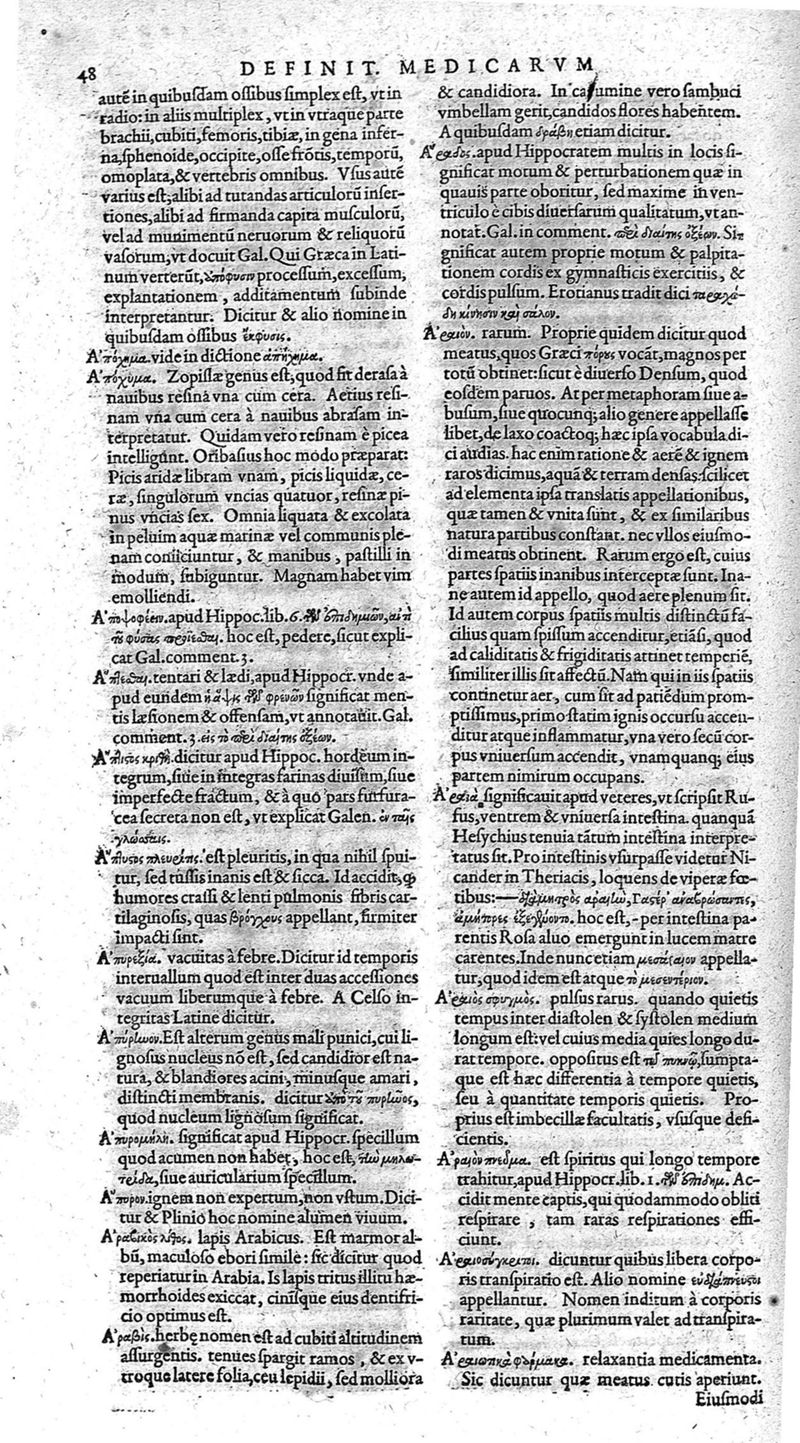 48
DEFINIT. MEDICARVM
autē in quibuſdam oſſibus ſimplex eſt, vt in
radio: in aliis multiplex, vt in vtraque parte
brachii, cubiti, femoris, tibiæ, in gena infer-
na, ſphenoide, occipite, oſſe frōtis, temporū,
omoplata, & vertebris omnibus. Vſus autē
varius eſt; alibi ad tutandas articulorū inſer-
tiones, alibi ad firmanda capita muſculorū,
vel ad munimentū neruorum & reliquorū
vaſorum, vt docuit Gal. Qui Græca in Lati-
num verterūt, ἀπόφυσιν proceſſum, exceſſum,
explantationem, additamentum ſubinde
interpretantur. Dicitur & alio nomine in
quibuſdam oſſibus ἔκφυσις.
Α᾿πόχημα. vide in dictione ἀπήχημα.
Α᾿πόχυμα. Zopiſſæ genus eſt, quod fit deraſa à
nauibus reſina vna cum cera. Aetius reſi-
nam vna cum cera à nauibus abraſam in-
terpretatur. Quidam vero reſinam è picea
intelligunt. Oribaſius hoc modo præparat:
Picis aridæ libram vnam, picis liquidæ, ce-
ræ, ſingulorum vncias quatuor, reſinæ pi-
nus vncias ſex. Omnia liquata & excolata
in peluim aquæ marinæ vel communis ple-
nam coniiciuntur, & manibus, paſtilli in
modum, ſubiguntur. Magnam habet vim
emolliendi.
Α᾿ποψοφέειν. apud Hippoc. lib. 6. τῶν ἐπιδημιῶν, ἀντὶ
τοῦ φύσας προΐεσθαι. hoc eſt, pedere, ſicut expli-
cat Gal. comment. 3.
Α῎πτεσθαι. tentari & lædi, apud Hippocr. vnde a-
pud eundem ἡ ἅψις τῶν φρενῶν ſignificat men-
tis læſionem & offenſam, vt annotauit. Gal.
comment. 3. εἰς τὸ περὶ διαίτης ὀξέων.
Α῎πτιστος κριθὴ. dicitur apud Hippoc. hordeum in-
tegrum, ſiue in integras farinas diuiſum, ſiue
imperfecte fractum, & à quo pars furfura-
cea ſecreta non eſt, vt explicat Galen. ἐν ταῖς
γλώσσαις.
Α῎πτυστος πλευρῖτις. eſt pleuritis, in qua nihil ſpui-
tur, ſed tuſſis inanis eſt & ſicca. Id accidit, ꝙ
humores craſſi & lenti pulmonis fibris car-
tilaginoſis, quas βρόγχους appellant, firmiter
impacti ſint.
Α᾿πυρεξία. vacuitas à febre. Dicitur id temporis
interuallum quod eſt inter duas acceſſiones
vacuum liberumque à febre. A Celſo in-
tegritas Latine dicitur.
Α᾿πύρηνον. Eſt alterum genus mali punici, cui li-
gnoſus nucleus nō eſt, ſed candidior eſt na-
tura, & blandiores acini, minuſque amari,
diſtincti membranis. dicitur ἀπὸ τοῦ πυρῆνος,
quod nucleum lignoſum ſignificat.
Α᾿πυρομήλη. ſignificat apud Hippocr. ſpecillum
quod acumen non habet, hoc eſt, τὴν μηλω-
τείδα, ſiue auricularium ſpecillum.
Α῎πυρον. ignem non expertum, non vſtum. Dici-
tur & Plinio hoc nomine alumen viuum.
Α᾿ραβικὸς λίθος. lapis Arabicus. Eſt marmor al-
bū, maculoſo ebori ſimile: ſic dicitur quod
reperiatur in Arabia. Is lapis tritus illitu hæ-
morrhoides exiccat, ciniſque eius dentifri-
cio optimus eſt.
Α῎ραβις. herbę nomen eſt ad cubiti altitudinem
aſſurgentis. tenues ſpargit ramos, & ex v-
troque latere folia, ceu lepidii, ſed molliora
& candidiora. In cacumine vero ſambuci
vmbellam gerit, candidos flores habentem.
A quibuſdam δράβη etiam dicitur.
Α῎ραδος. apud Hippocratem multis in locis ſi-
gnificat motum & perturbationem quæ in
quauis parte oboritur, ſed maxime in ven-
triculo è cibis diuerſarum qualitatum, vt an-
notat. Gal. in comment. περὶ διαίτης ὀξέων. Si-
gnificat autem proprie motum & palpita-
tionem cordis ex gymnaſticis exercitiis, &
cordis pulſum. Erotianus tradit dici ταραχώ-
δη κίνησιν καὶ σάλον.
Α᾿ραιὸν. rarum. Proprie quidem dicitur quod
meatus, quos Græci πόρους vocāt, magnos per
totū obtinet: ſicut è diuerſo Denſum, quod
eoſdem paruos. At per metaphoram ſiue a-
buſum, ſiue quocunq; alio genere appellaſſe
libet, de laxo coactoq; hæc ipſa vocabula di-
ci audias. hac enim ratione & aerē & ignem
raros dicimus, aquā & terram denſas: ſcilicet
ad elementa ipſa translatis appellationibus,
quæ tamen & vnita ſunt, & ex ſimilaribus
natura partibus conſtant. nec vllos eiuſmo-
di meatus obtinent. Rarum ergo eſt, cuius
partes ſpatiis inanibus interceptæ ſunt. Ina-
ne autem id appello, quod aere plenum ſit.
Id autem corpus ſpatiis multis diſtinctū fa-
cilius quam ſpiſſum accenditur, etiāſi, quod
ad caliditatis & frigiditatis attinet temperiē,
ſimiliter illis ſit affectū. Nam qui in iis ſpatiis
continetur aer, cum ſit ad patiēdum prom-
ptiſſimus, primo ſtatim ignis occurſu accen-
ditur atque inflammatur, vna vero ſecū cor-
pus vniuerſum accendit, vnamquanq; eius
partem nimirum occupans.
Α᾿ραιὰ. ſignificauit apud veteres, vt ſcripſit Ru-
fus, ventrem & vniuerſa inteſtina. quanquā
Heſychius tenuia tātum inteſtina interpre-
tatus ſit. Pro inteſtinis vſurpaſſe videtur Ni-
cander in Theriacis, loquens de viperæ fœ-
tibus:—διὰ μητρὸς ἀραιὴν, Γαστέρ᾽ ἀναβρώσαντες,
ἀμήτορες ἐξεγένοντο. hoc eſt, - per inteſtina pa-
rentis Roſa aluo emergunt in lucem matre
carentes. Inde nunc etiam μεσάραιον appella-
tur, quod idem eſt atque τὸ μεσεντέριον.
Α᾿ραιὸς σφυγμὸς. pulſus rarus. quando quietis
tempus inter diaſtolen & ſyſtolen medium
longum eſt: vel cuius media quies longo du-
rat tempore. oppoſitus eſt τῷ πυκνῷ, ſumpta-
que eſt hæc differentia à tempore quietis,
ſeu à quantitate temporis quietis. Pro-
prius eſt imbecillæ facultatis, vſuſque defi-
cientis.
Α᾿ραιὸν πνεῦμα. eſt ſpiritus qui longo tempore
trahitur, apud Hippocr. lib. 1. τῶν ἐπιδημ. Ac-
cidit mente captis, qui quodammodo obliti
reſpirare, tam raras reſpirationes effi-
ciunt.
Α᾿ραιοσύγκριτοι. dicuntur quibus libera corpo-
ris tranſpiratio eſt. Alio nomine εὐδιάπνευστοι
appellantur. Nomen inditum à corporis
raritate, quæ plurimum valet ad tranſpira-
tum.
Α᾿ραιωτικὰ φάρμακα. relaxantia medicamenta.
Sic dicuntur quæ meatus cutis aperiunt.
Eiuſmodi